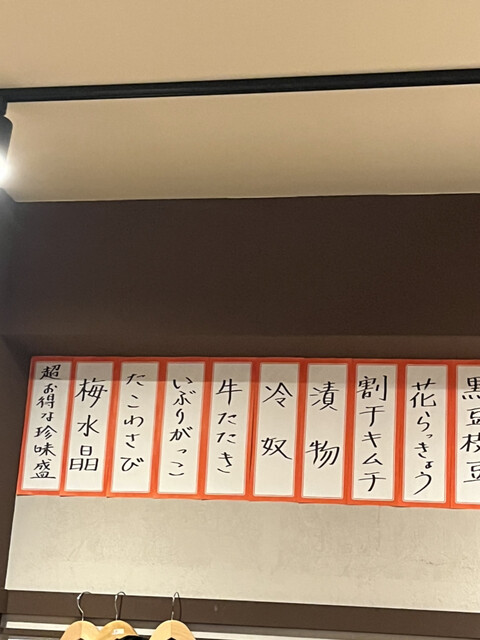 黒豆枝豆
花らっきょう
割干キムチ
漬物
冷奴
牛たたき
いぶりがっこ
たこわさび
梅水晶
超お得な珍味盛